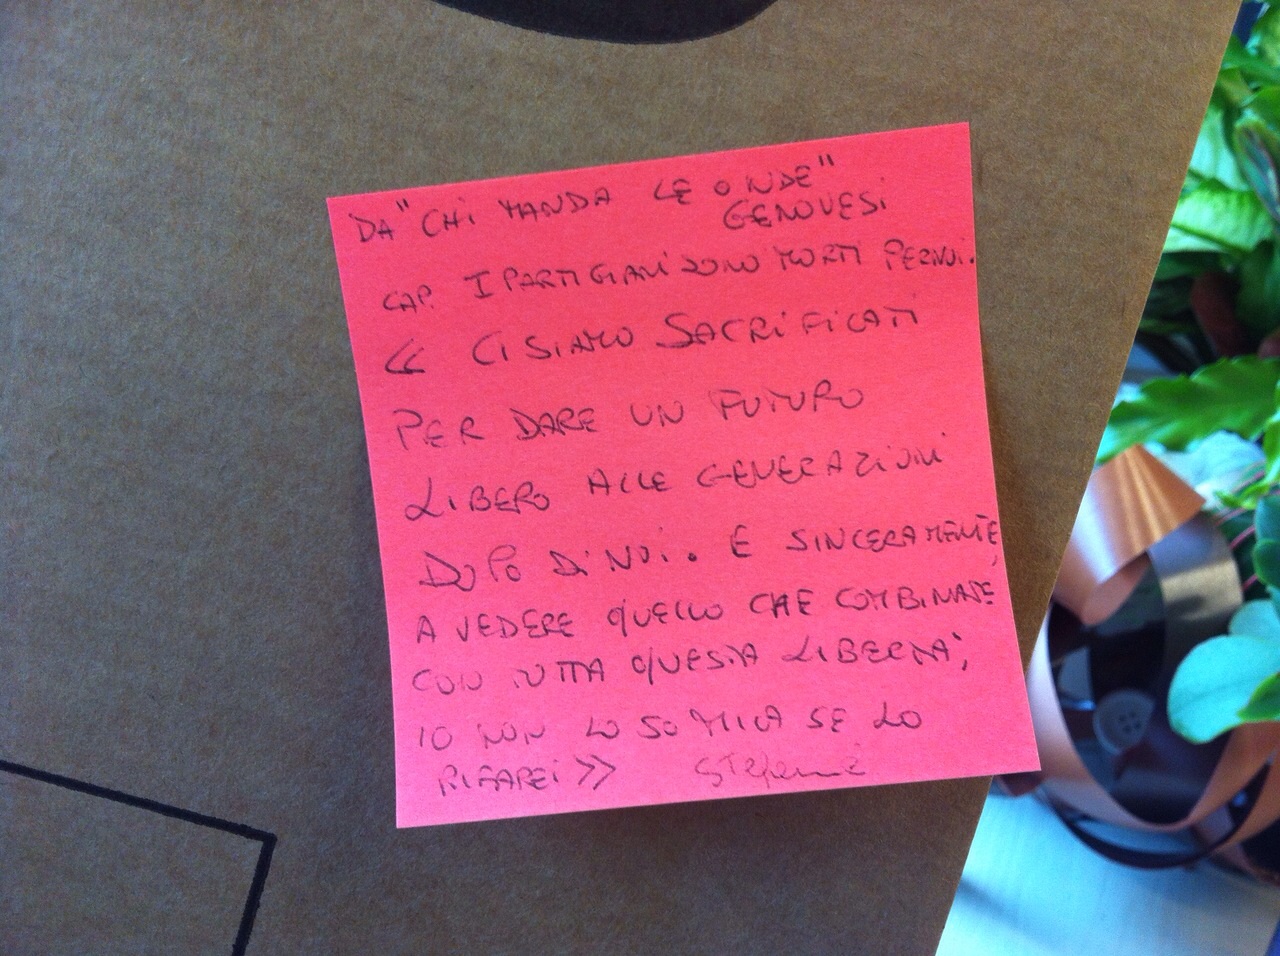 DA "CHI MANDA LE ONDE"
GENOVESI
CAP. I PARTIGIANI SONO MORTI PER NOI.
« CI SIAMO SACRIFICATI
PER DARE UN FUTURO
LIBERO ALLE GENERAZIONI
DOPO DI NOI. E SINCERAMENTE,
A VEDERE QUELLO CHE COMBINATE
CON TUTTA QUESTA LIBERTA',
IO NON LO SO MICA SE LO
RIFAREI »